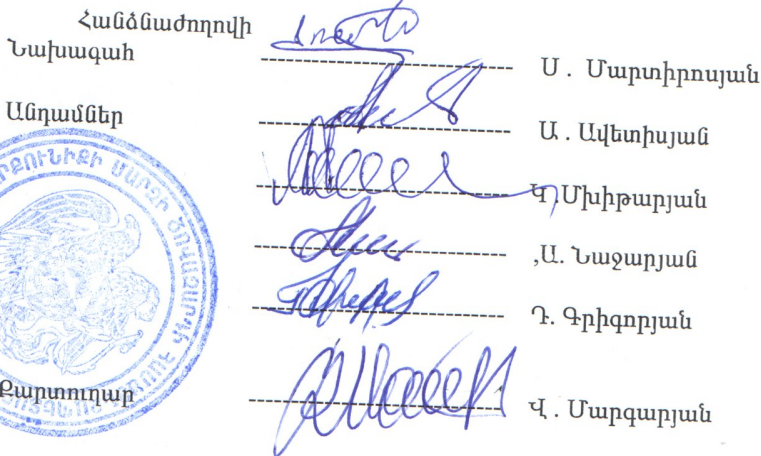 Հանձնաժողովի
Նախագահ ---------------------------- Ս . Մարտիրոսյան
Անդամներ ---------------------------- Ա . Ավետիսյան
---------------------------- Կ.Մխիթարյան
---------------------------- ,Ա. Նաջարյան
---------------------------- Դ. Գրիգորյան
Քարտուղար ---------------------------- Վ . Մարգարյան
ՄԱՐԶԻ ԾՈՎԱԶԱՐԴԻ